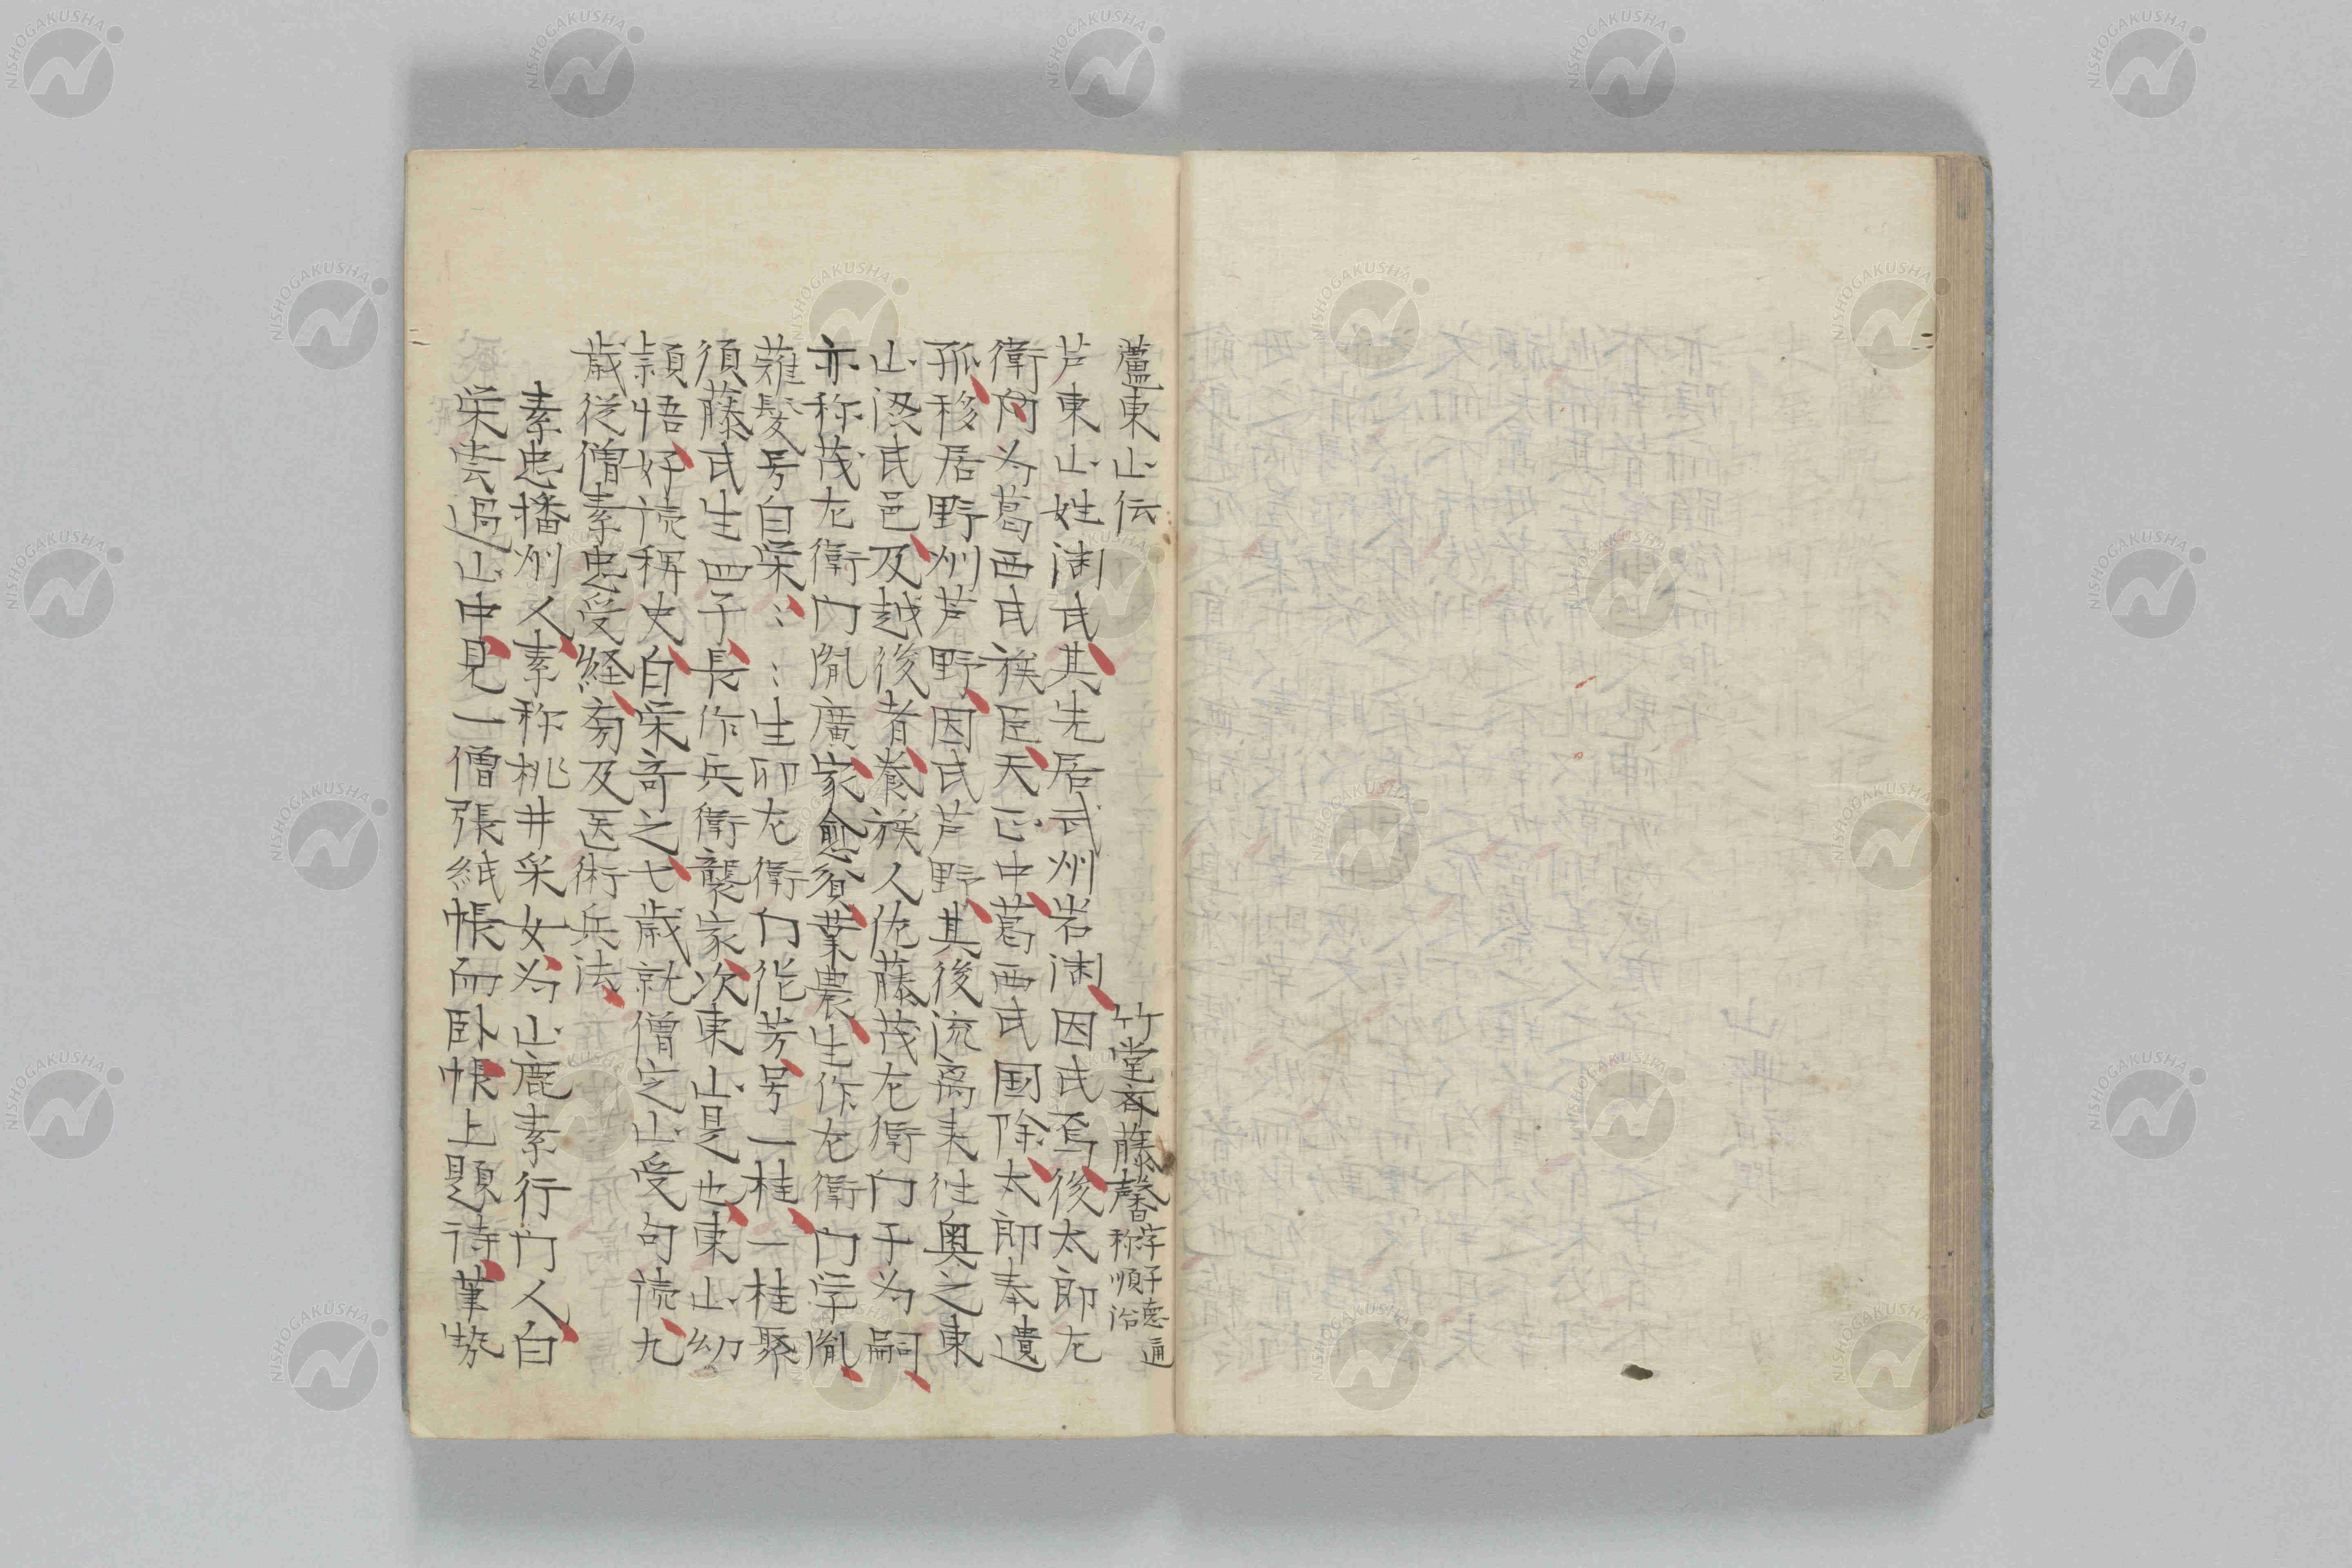 蘆東山伝
竹堂斉藤馨 字子徳通称順治
芦東山姓渕氏其先居武州岩渕因氏焉後太郎左
衛門为葛西氏族臣天正中葛西氏国除太郎奉遺
孤移居野州芦野因氏芦野其後流离来往奥之東
山渋民邑及越後者養族人佐藤茂左衛门子为嗣
亦称茂左衛门胤廣家愈貧業農生作左衛门学胤
薙髪号白栄〻〻生卯左衛门従芳号一桂一桂聚
須藤氏生四子長作兵衛襲家次東山是也東山幼
穎悟好読稗史白栄奇之七歳就僧定山受句読九
歳従僧素忠受経芴及医術兵法
素忠播州人素称桃井采女为山鹿素行门人白
栄嘗過山中見一僧張紙帳而臥帳上題待筆勢
NISHOGAKUSHA